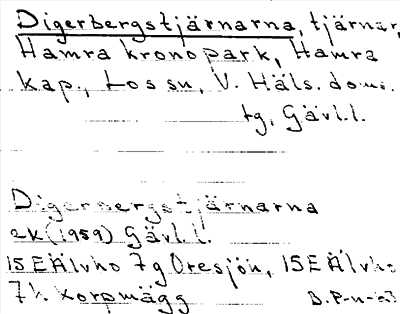 Digerbergstjärnarna, tjärnar,
Hamra kronopark, Hamra
kap., Los sn, V. Häls. doms.
tg, Gävl.l.
Digerbergstjärnarna
2k (1959) Gävl.l.
15E Älvho 7g Oresjön, 15E Älvho
7h Korpmägg